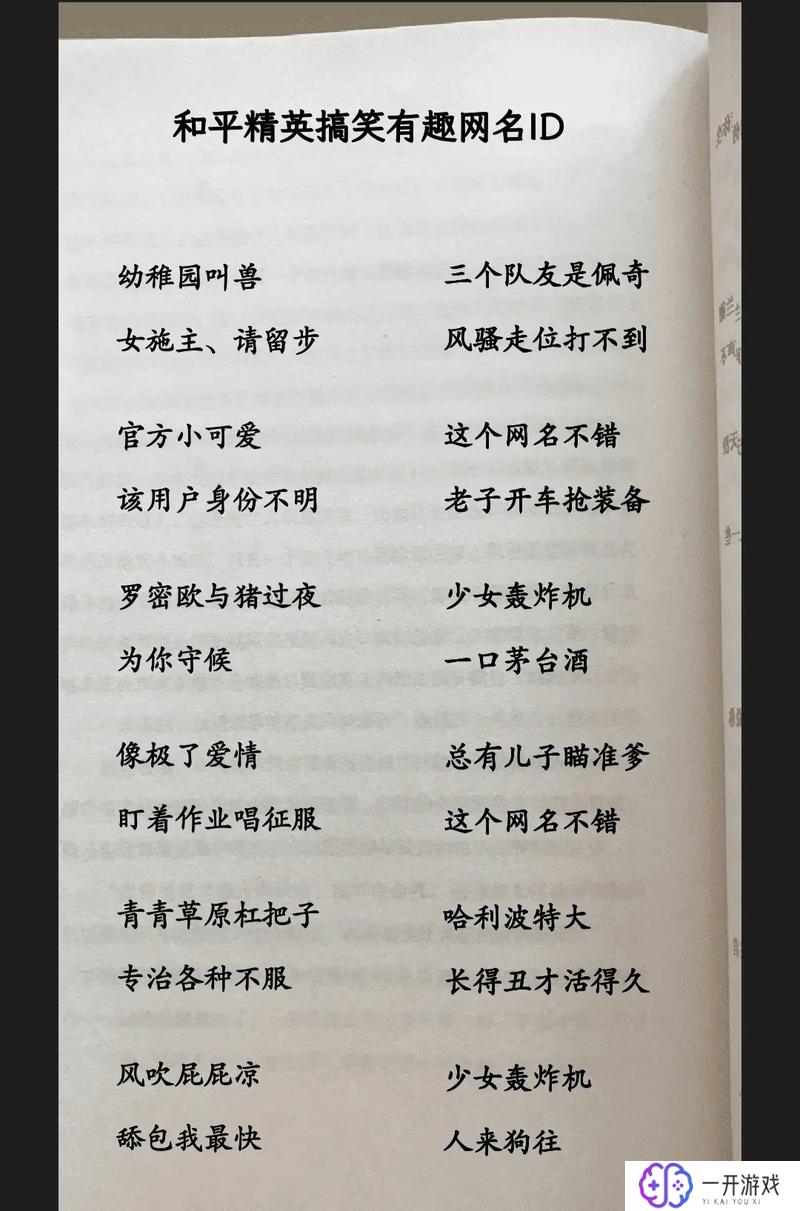 和平精英搞笑有趣网名ID
幼稚园叫兽 三个队友是佩奇
女施主、请留步 风骚走位打不到
官方小可爱 这个网名不错
该用户身份不明 老子开车抢装备
罗密欧与猪过夜 少女轰炸机
为你守候 一口茅台酒
像极了爱情 总有儿子瞄准爹
盯着作业唱征服 这个网名不错
青青草原杠把子 哈利波特大
专治各种不服 长得丑才活得久
风吹屁屁凉 少女轰炸机
舔包我最快 人来狗往
一开游戏
YI KAI YOU XI